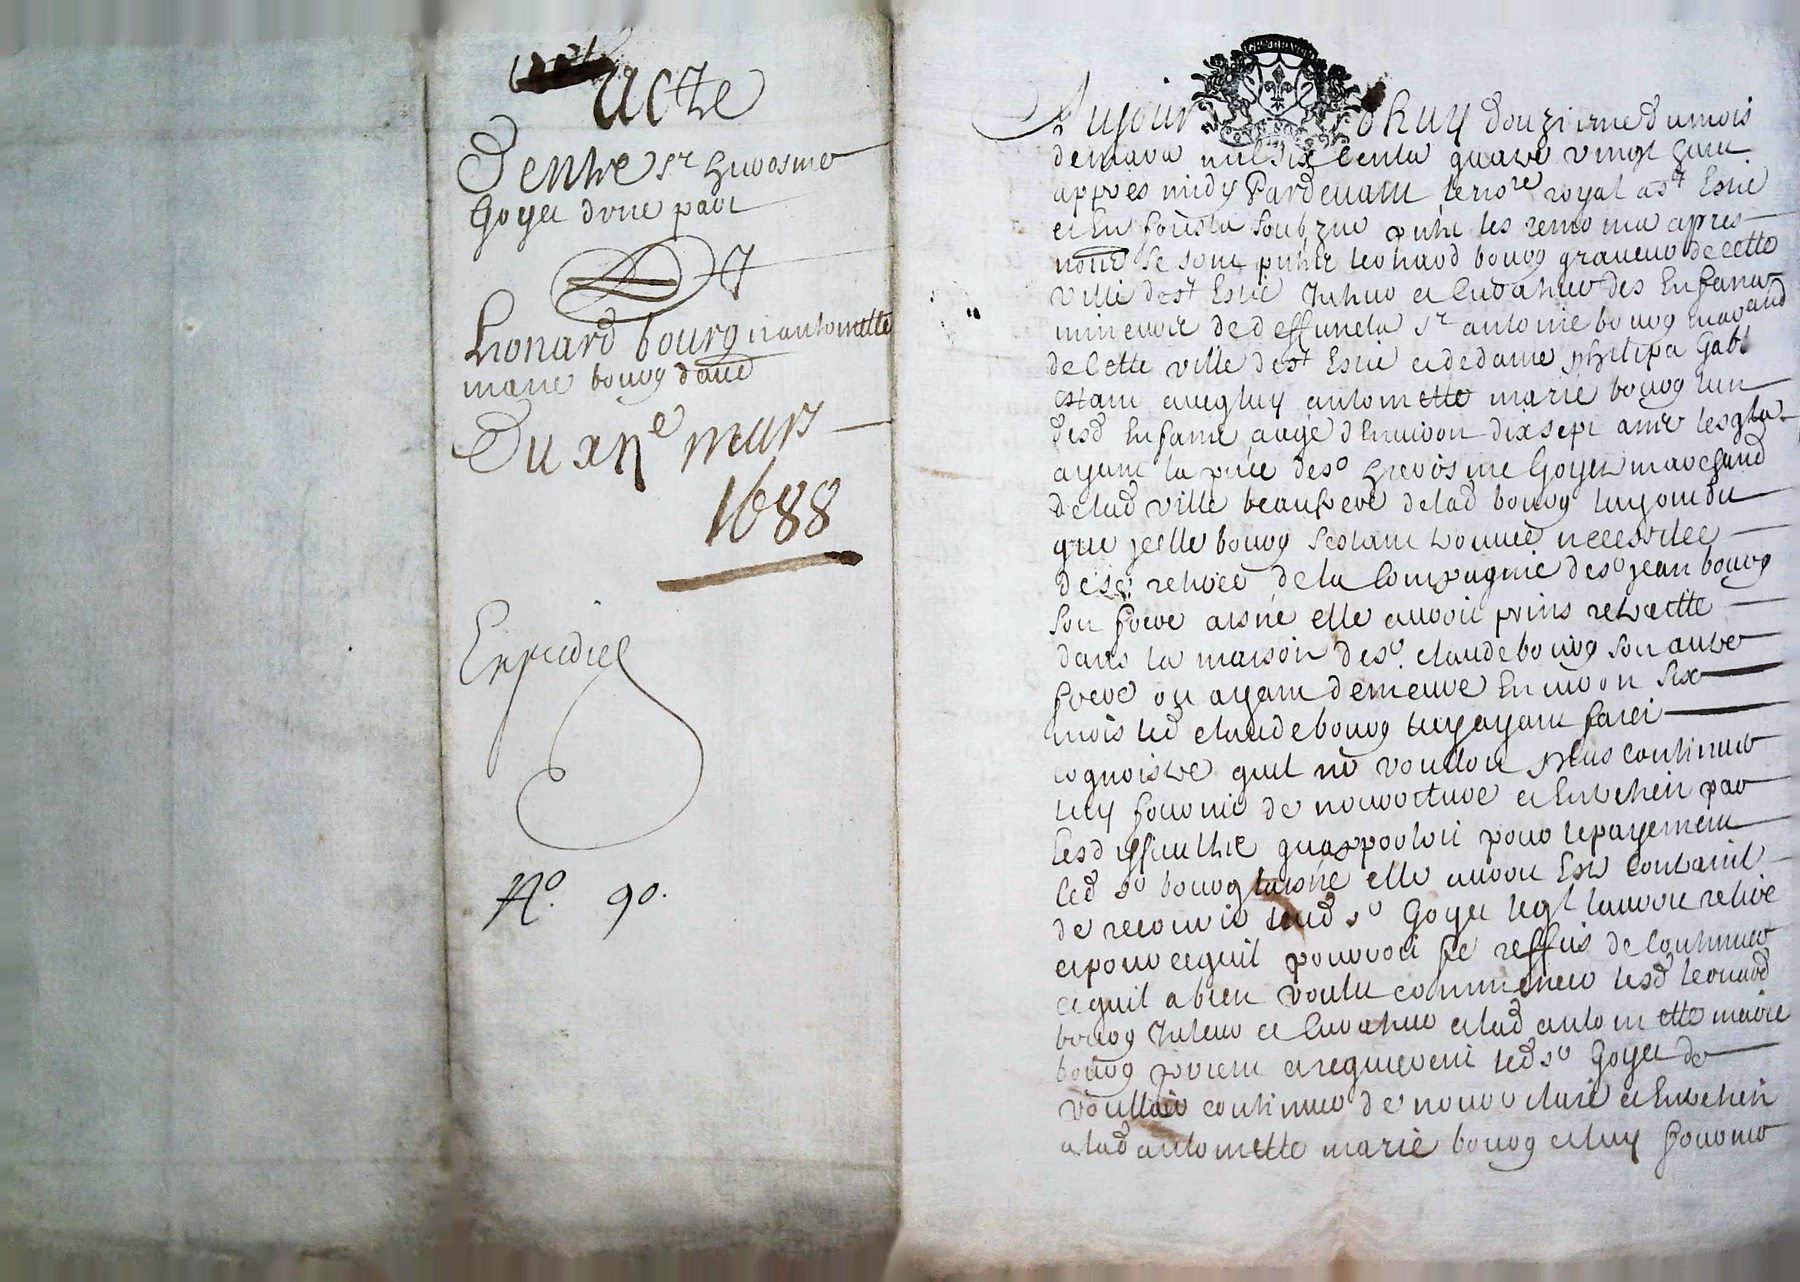 Acte
D'entre Sr Hierosme
Goyet d'une part
Et
Leonard bourg et antoinette
marie bourg d'aud
Du xije mars
1688
Expedié
No. 90.
Aujourdhuy douziesme du mois
de mars mil six centz quatre vingt huit
appres midy Pardevant le nore royal a St Estie
et en forestz soubzne les temoins apres
nommé Se sont leonard bourg graveur de cette
ville de St Estie Tuteur et Curateur des Enfans
mineurs de deffunctz Sr antoine bourg marchand
de Cette ville de St Estie et de dame philipa Gabt
estant avec luy antoinette marie bourg lun
desd Enfans aagé d'Environ dix sept ans lesqlz
ayant la de Sr hierosme Goyet marchand
de lad ville beaufrere de lad bourg luy ont dit
que jcelle bourg sestant trouvée necessitée
de se retirer de la Compagnie de Sr jean bourg
son frere aisné elle auroit prins retraitte
dans la maison de Sr. claude bourg son autre
frere ou ayant demeuré Environ six
mois led claude bourg luy ayant faict
cognoistre quil ne vouloit plus continuer
luy fournir de nourriture et Entretien par
les difficultés quapportoit pour le payement
led Sr bourg laisné elle auroit Esté contrainte
de recourir aud Sr Goyet leql lauroit retiré
et pour ce quil pourroit fe reffus de Continuer
ce quil a bien voulu commencer lesd leonard
bourg Tuteur et Curateur et lad antoinette marie
bourg prient et requierent led Sr Goyet de
voulloir continuer de nourriture et Entretien
a lad antoinette marie bourg et luy fournir